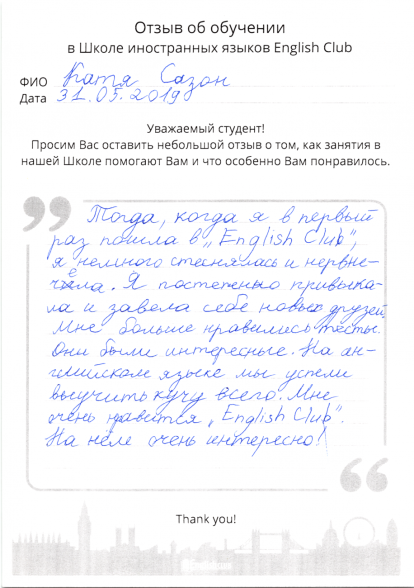 Отзыв об обучении
в Школе иностранных языков English Club
ФИО Катя Сазон
Дата 31.05.2019
Уважаемый студент!
Просим Вас оставить небольшой отзыв о том, как занятия в
нашей Школе помогают Вам и что особенно Вам понравилось.
Тогда, когда я в первый
раз пошла в „English Club",
я немного стеснялась и нервни-
чела. Я постепенно привыка-
ла и завела себе новых друзей.
Мне больше нравились тесты.
Они были интересные. На ан-
глийском языке мы успели
выучить кучу всего. Мне
очень нравится „English Club".
На нём очень интересно!
Thank you!